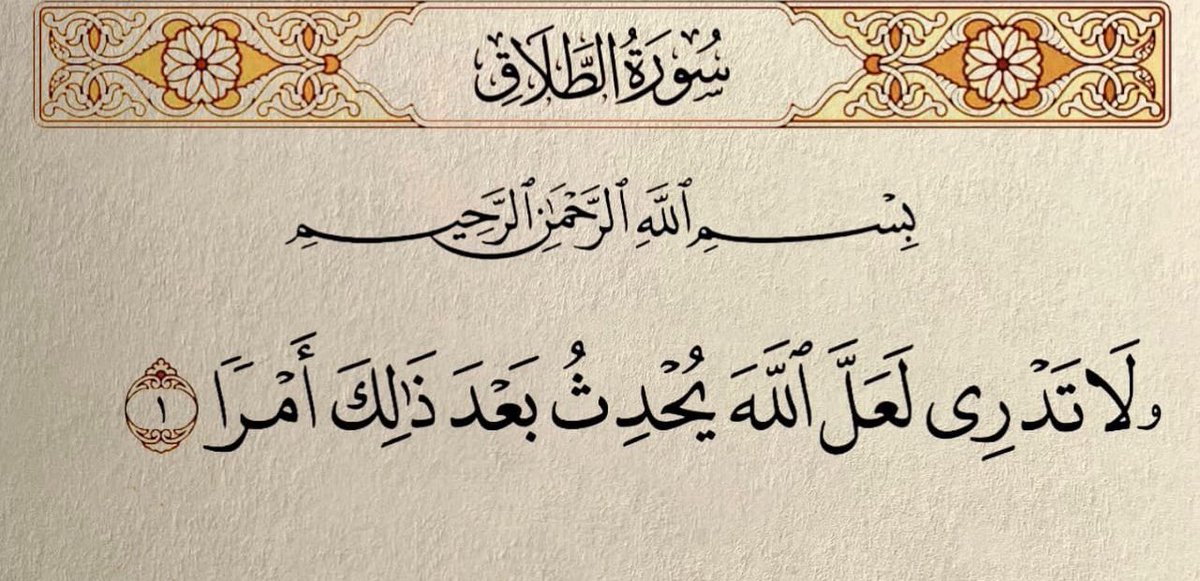 سُورَةُ الطَّلَاقِ
بِسْمِ ٱللَّهِ ٱلرَّحْمَٰنِ ٱلرَّحِيمِ
و لَا تَدْرِى لَعَلَّ ٱللَّهَ يُحْدِثُ بَعْدَ ذَٰلِكَ أَمْرًا ١